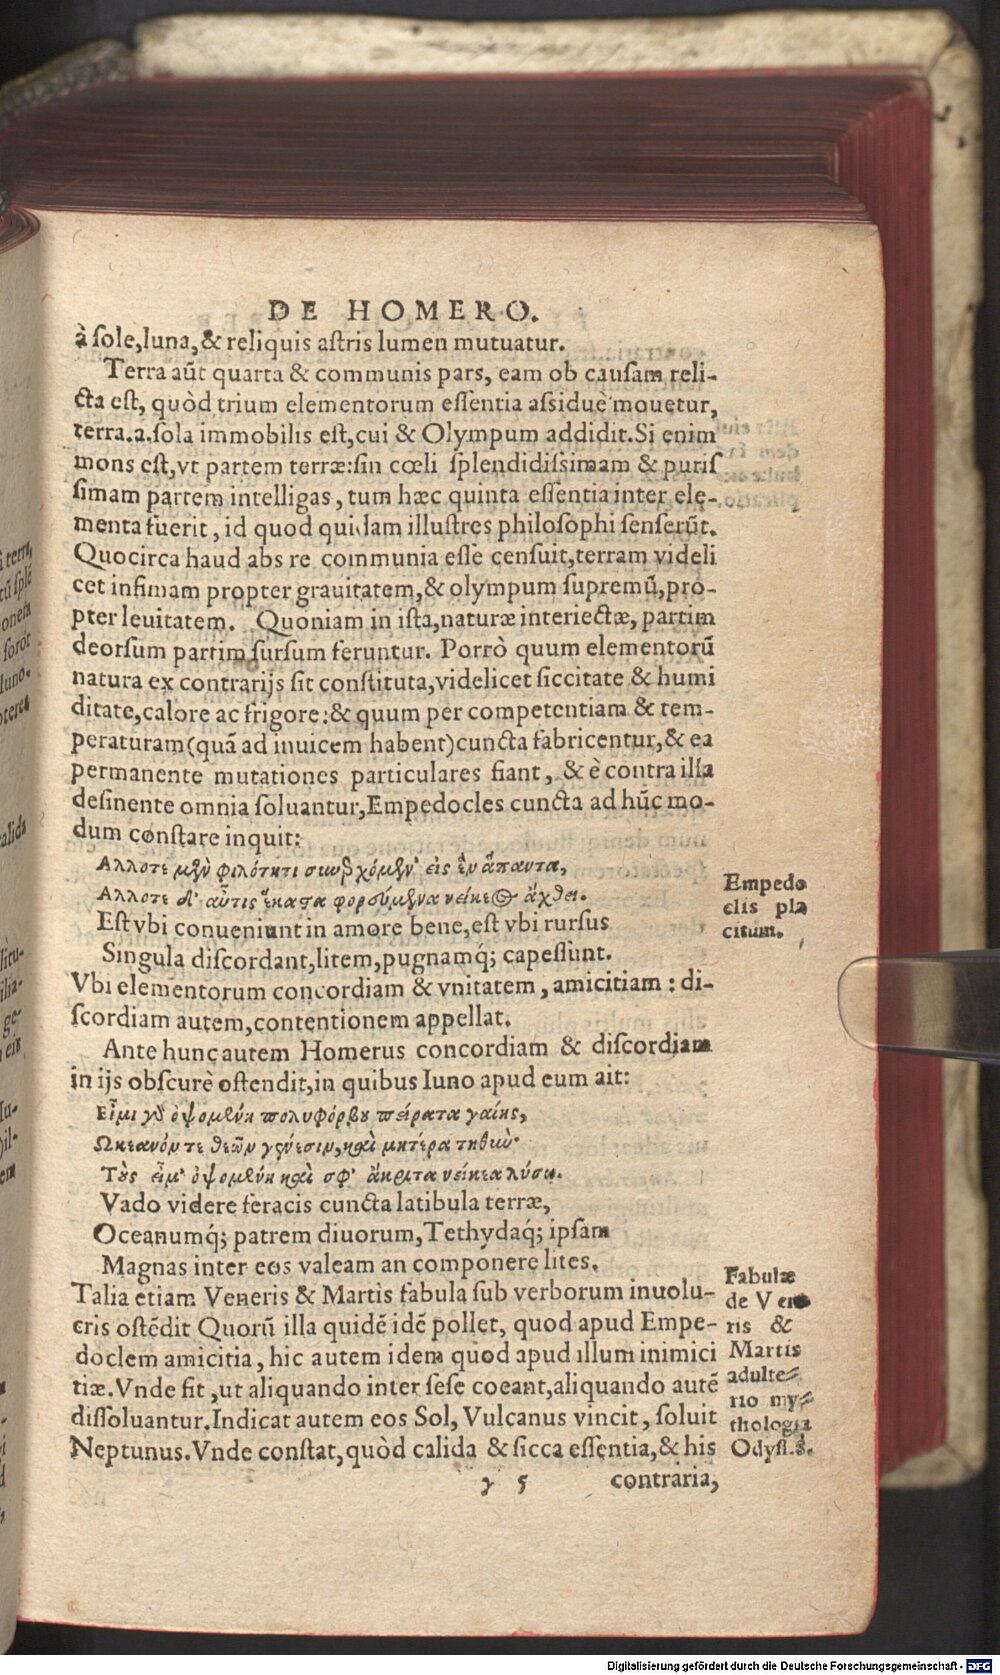 DE HOMERO.
à sole, luna, & reliquis astris lumen mutuatur.
Terra aũt quarta & communis pars, eam ob causam reli-
cta est, quòd trium elementorum essentia assiduè mouetur,
terra.a.sola immobilis est, cui & Olympum addidit. Si enim
mons est, vt partem terræ: sin cœli splendidissimam & puris
simam partem intelligas, tum hæc quinta essentia inter ele-
menta fuerit, id quod quidam illustres philosophi senserũt.
Quocirca haud abs re communia esse censuit, terram videli
cet infimam propter grauitatem, & olympum supremũ, pro-
pter leuitatem. Quoniam in ista, naturæ interiectæ, partim
deorsum partim sursum feruntur. Porrò quum elementorũ
natura ex contrarijs sit constituta, videlicet siccitate & humi
ditate, calore ac frigore: & quum per competentiam & tem-
peraturam (quã ad inuicem habent) cuncta fabricentur, & ea
permanente mutationes particulares fiant, & è contra illa
desinente omnia soluantur, Empedocles cuncta ad hũc mo-
dum constare inquit:
Αλλοτε μὲν φιλότητι συνερχόμεν' εἰς ἓν ἅπαντα,
Αλλοτε δ' αὖτις ἕκαστα φορσύμενα νείκεος ἄχθει.
Est vbi conueniunt in amore bene, est vbi rursus
Singula discordant, litem, pugnamq́; capessunt.
Vbi elementorum concordiam & vnitatem, amicitiam: di-
scordiam autem, contentionem appellat.
Ante hunc autem Homerus concordiam & discordiam
in ijs obscurè ostendit, in quibus Iuno apud eum ait:
Εἶμι γὰρ ὀψομένη πολυφόρβου πείρατα γαίης,
Ωκεανόν τε θεῶν γένεσιν, καὶ μητέρα τηθὺν·
Τοὺς εἶμ' ὀψομένη καὶ σφ' ἄκριτα νείκεα λύσω.
Vado videre feracis cuncta latibula terræ,
Oceanumq́; patrem diuorum, Tethydaq́; ipsam
Magnas inter eos valeam an componere lites.
Talia etiam Veneris & Martis fabula sub verborum inuolu-
cris ostẽdit Quorũ illa quidẽ idẽ pollet, quod apud Empe-
doclem amicitia, hic autem idem quod apud illum inimici
tiæ. Vnde fit, ut aliquando inter sese coeant, aliquando autẽ
dissoluantur. Indicat autem eos Sol, Vulcanus vincit, soluit
Neptunus. Vnde constat, quòd calida & sicca essentia, & his
y 5 contraria,
Empedo
clis pla
citum.
Fabulæ
de Vene
ris &
Martis
adulte-
rio my-
thologia
Odyss.8.
Digitalisierung gefördert durch die Deutsche Forschungsgemeinschaft - DFG